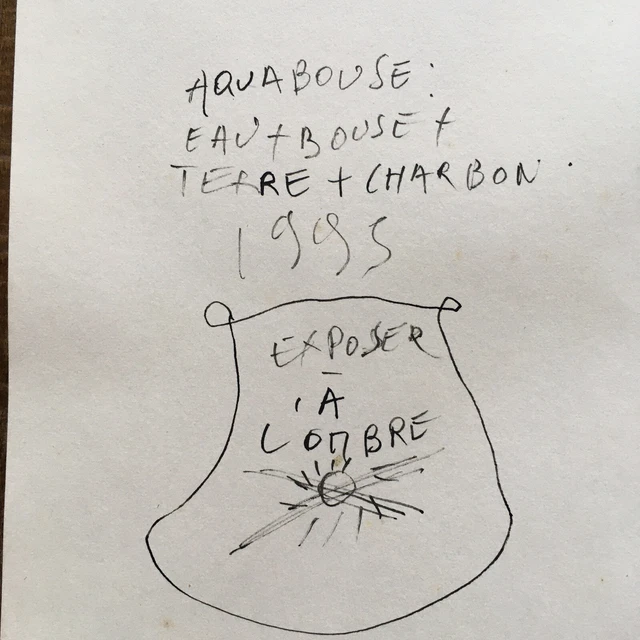 AQUABOUSE:
EAU+BOUSE+
TERRE+CHARBON.
1995
EXPOSER
À
L'OMBRE